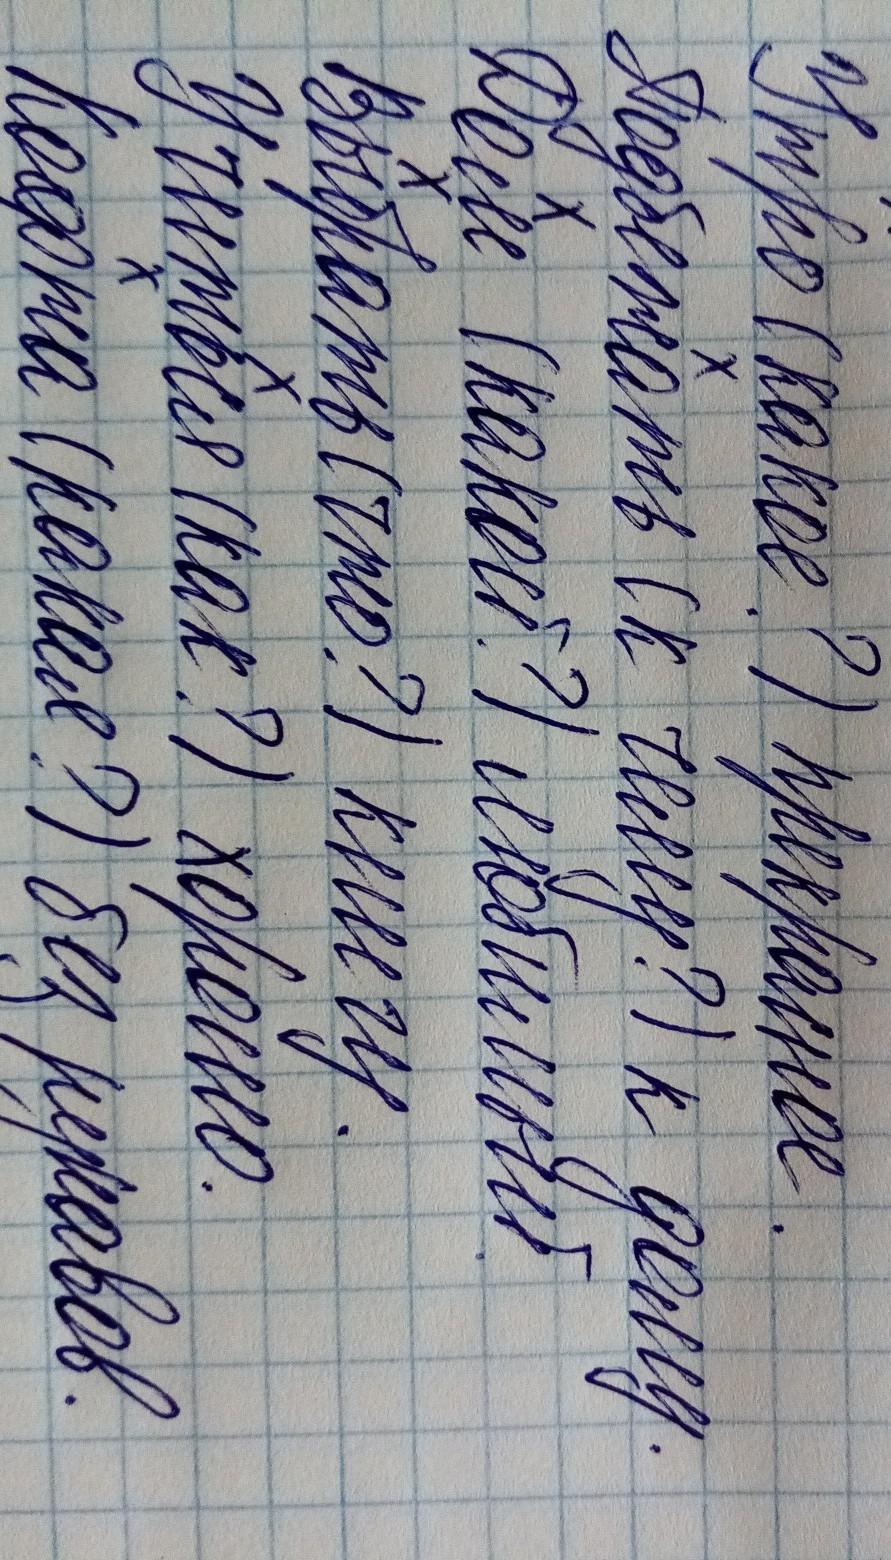 Утро (какое?) прекрасное.
Подбежать (к чему?) к дому.
Доме (какой?) любимый.
Выбрать (что?) книгу.
Учиться (как?) хорошо.
Кофта (какая?) без рукавов.